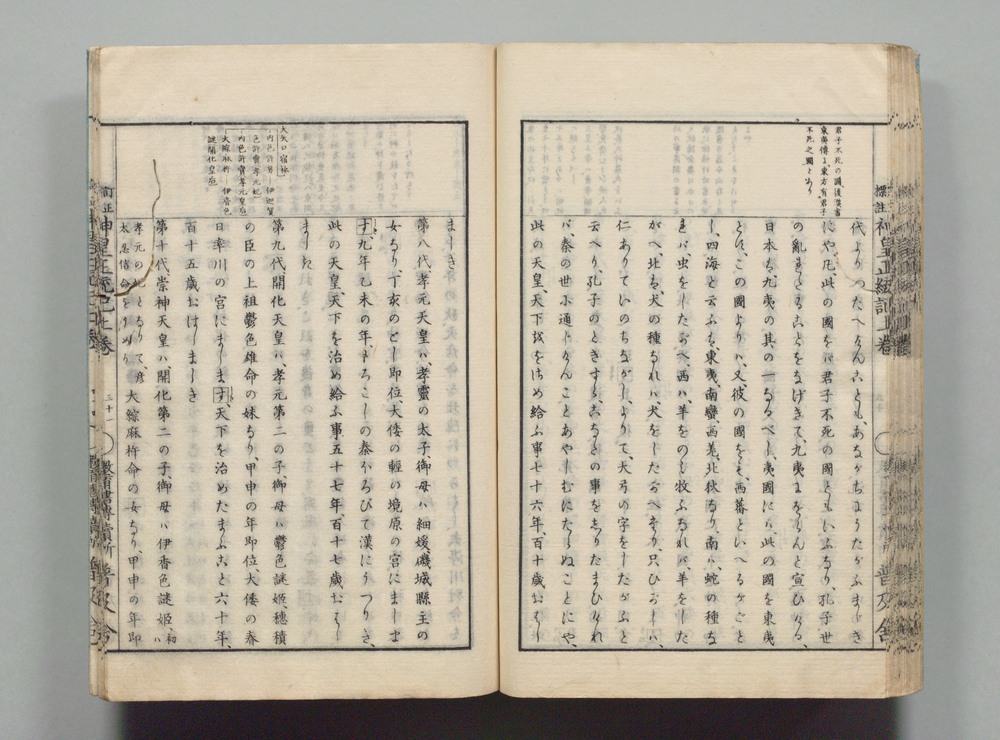 君子不死の國後漢書
東夷傳に、東方有君子
不死之國とあり
代よりつたへけんこともあながちにうたがふまじき
にや、凡、此の國をバ君子不死の國ともいふなり、孔子世
の亂まとることをなげきて、九夷にをらんと宣ひける、
日本ハ、九夷の其の一なるべし、夷國にハ、此の國を東夷
とす、この國よりハ、又、彼の國をも、西蕃といへるがごと
し、四海と云ふハ、東夷、南蠻、西羗、北狄なり、南ハ、蛇の種な
れバ、虫をしたがへ、西ハ、羊をのミ牧ふなれバ、羊をした
がへ、北ハ、犬の種なれハ、犬をしたがへたり、只ひがしハ、
仁ありていのちながし、よりて、大弓の字をしたがふと
云へり、孔子のときすらこなたの事をしりたまひけれ
バ、秦の世に通じけんことあやしむにたらぬことにや、
此の天皇、天下をはめ給ふ事七十六年、百十歳おはし
標註神皇正統記上巻
普及舍
大矢口宿祢
内色許男 伊迦賀
色許賣孝元妃
内色許賣孝元皇后
大綜麻杵 伊香色
謎開化皇后
ましき
第八代、孝元天皇ハ、孝靈の太子、御母ハ細媛、磯城縣主の
女なり、丁亥のとし即位、大倭の輕の境原の宮にましま
す、九年乙未の年、もろこしの秦ほろびて漢にうつりき、
此の天皇、天下を治め給ふ事五十七年、百十七歳おはし
ましき
第九代、開化天皇ハ、孝元第二の子、御母ハ鬱色謎姫、穂積
の臣の上祖鬱色雄命の妹なり、甲申の年即位、大倭の春
日率川の宮にまします、天下を治めたまふこと六十年、
百十五歳おはしましき
第十代、崇神天皇ハ、開化第二の子、御母ハ伊香色謎姫、初ハ
孝元の妃となりて、彦
太忍信命をうめり 大綜麻杵命の女なり、甲申の年即
訂正神皇正統記上巻
三十一
普及舍